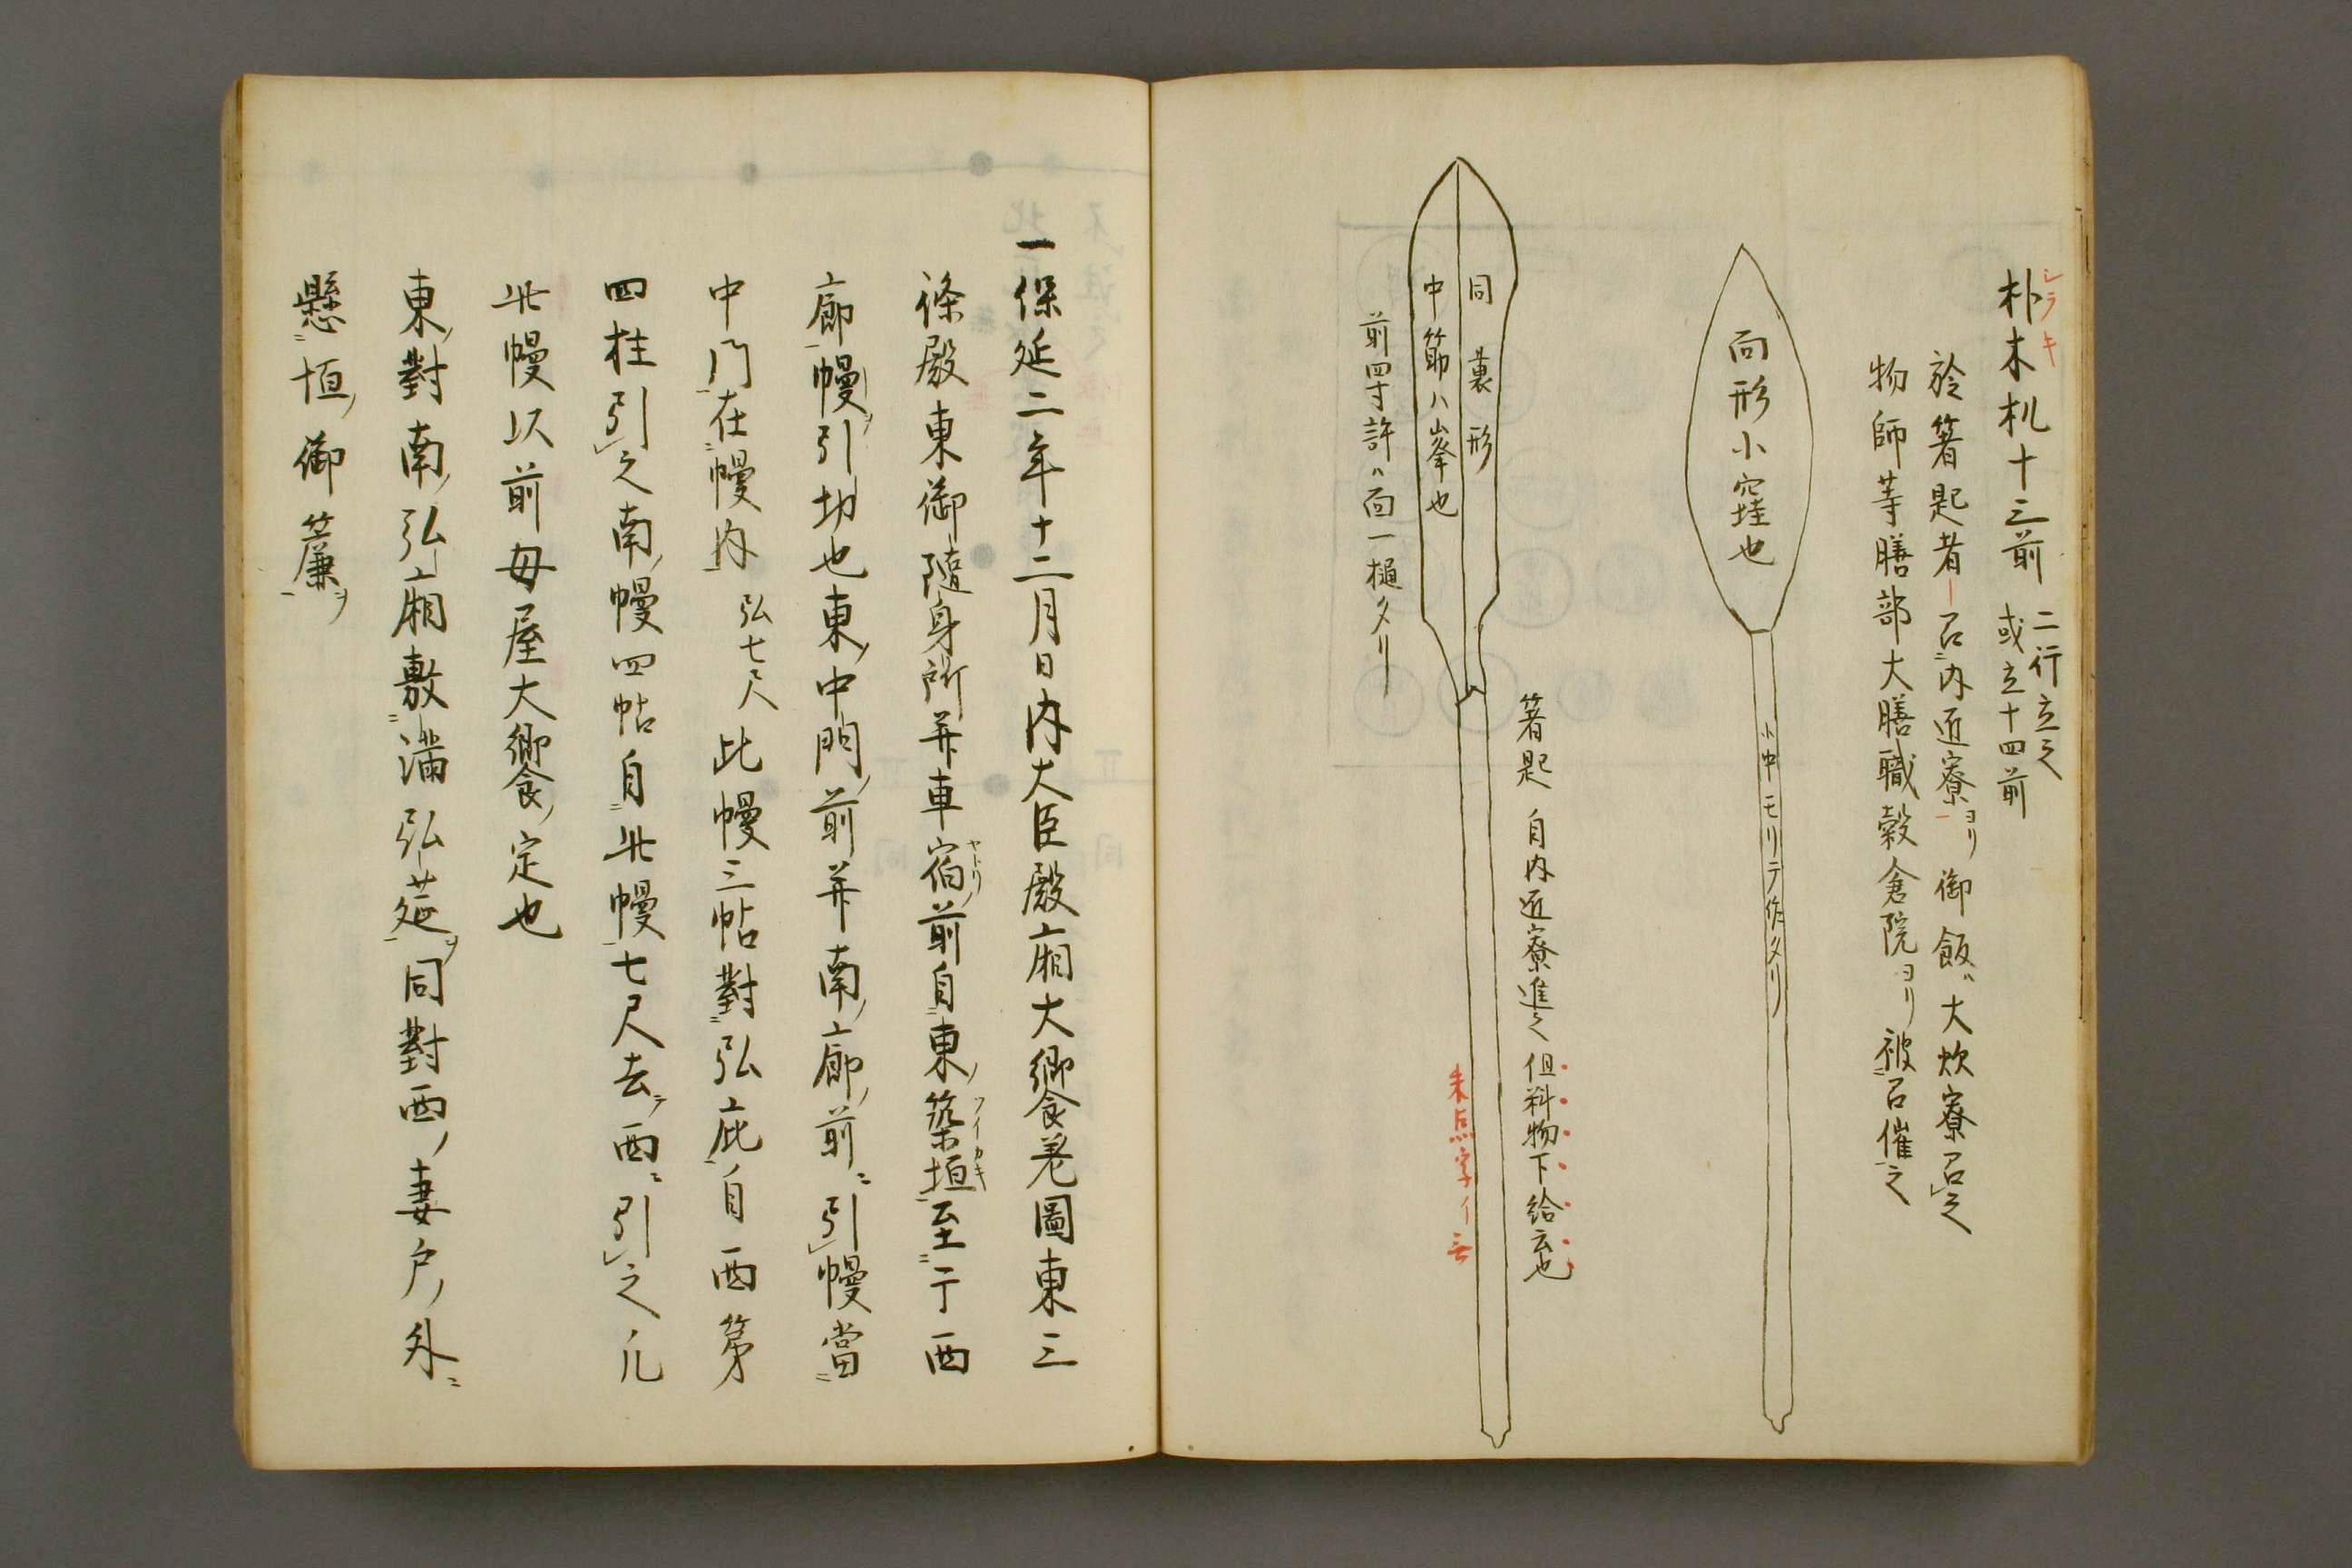 朴木机十三前
シラキ
二行立之
或立十四前
於箸匙者召内匠寮ヨリ御飯ハ大炊寮召之
物師等膳部大膳職穀倉院ヨリ被召催之
面形小窪也
小中モリテ作タリ
箸匙自内匠寮進之但料物下給云也
朱点字イ无
同裏形
中節ハ峯也
前四寸許ハ面一樋タリ
一保延二年十二月日内大臣殿廂大饗差圖東三
條殿東御隨身所并車宿前自東ノ築垣至于西
ヤトリ
ツイカキ
廊幔引切也東ノ中門ノ前并南ノ廊ノ前ニ引幔當
中門在幔内弘七尺此幔三帖對弘庇自西第
四柱引之南ノ幔四帖自北幔七尺去テ西ニ引之凡
北幔以前母屋大饗ノ定也
東ノ對南ノ弘廂敷滿弘莚ヲ同對西ノ妻戸ノ外ニ
懸垣ノ御簾ヲ